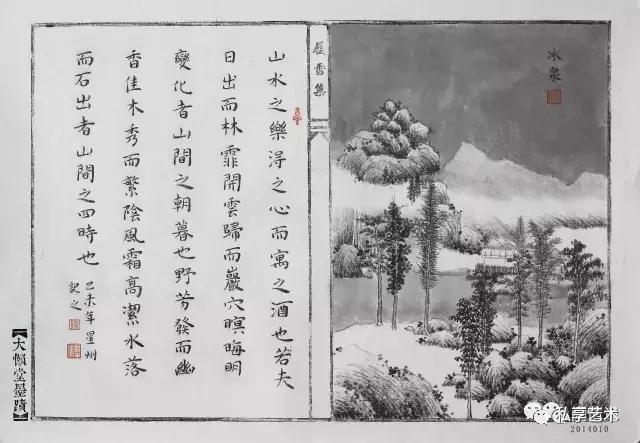 冰
履雪集
山水之樂淂之心而寓之酒也若夫
日出而林霏開雲歸而巖穴暝晦明
變化者山間之朝暮也野芳發而幽
香佳木秀而繁陰風霜高潔水落
而石出者山間之四時也
己未年星州
記之
【大懶堂墨蹟】
私享艺术
2014010